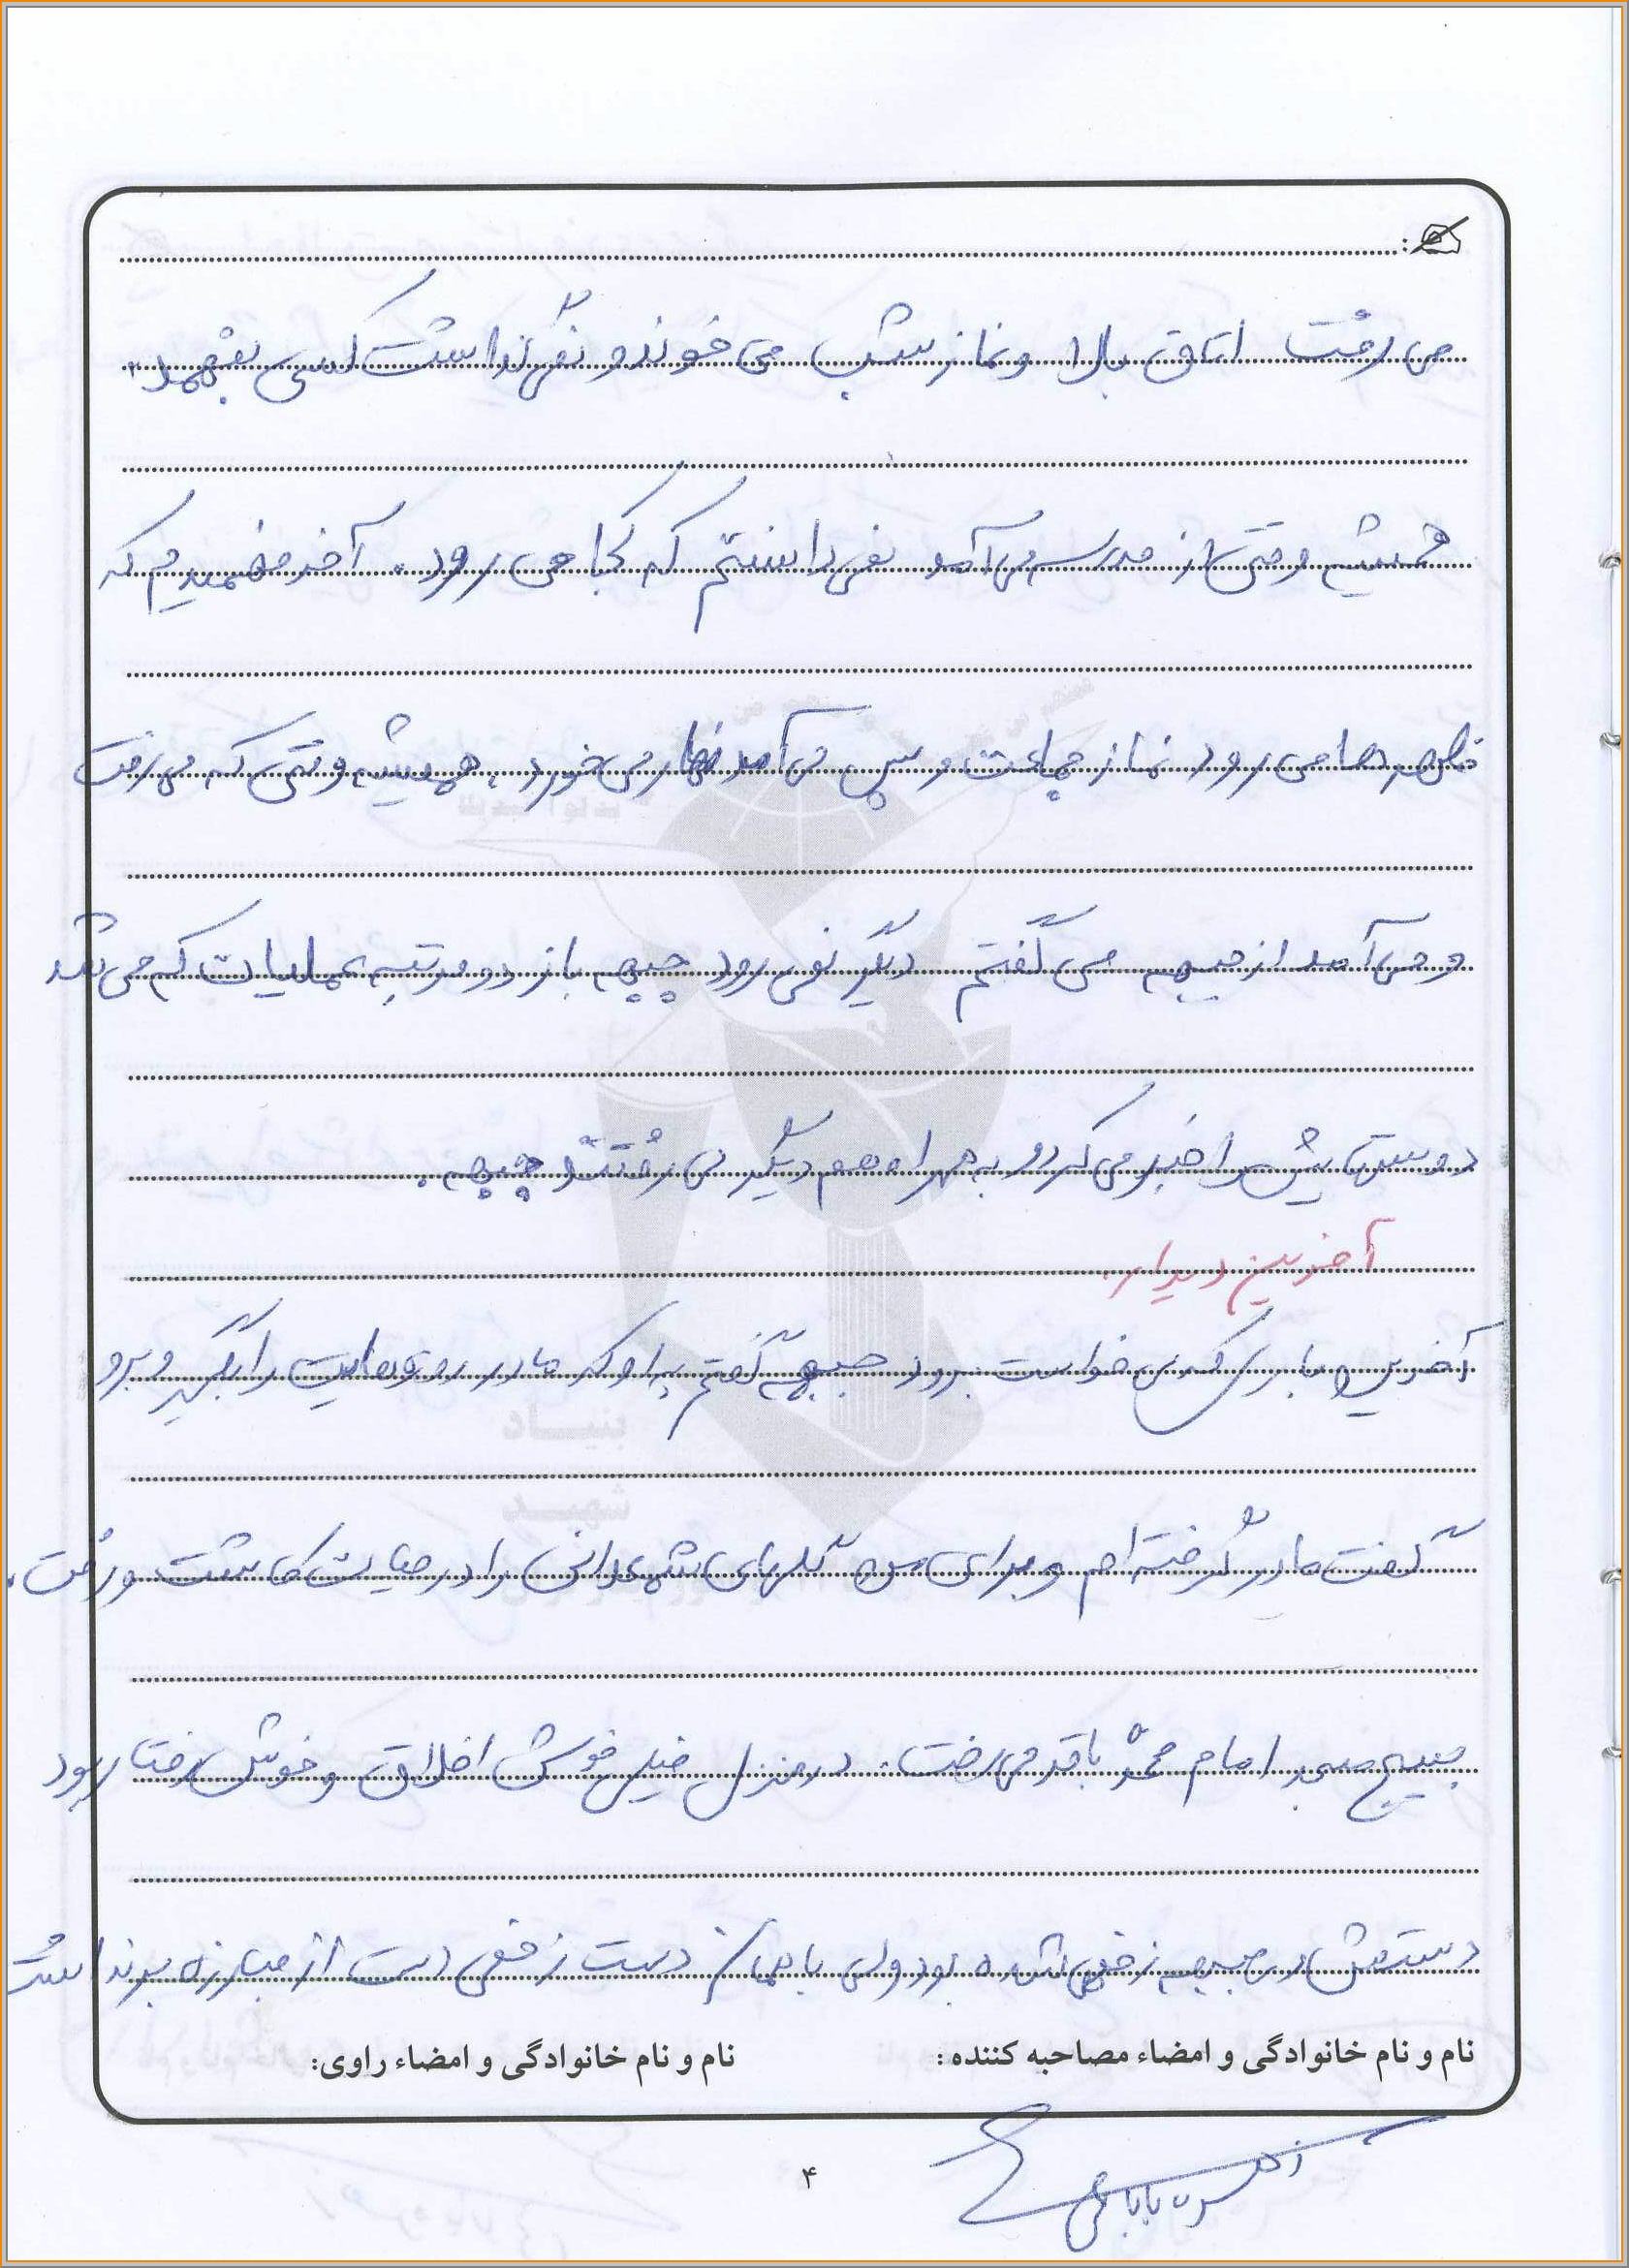 می رفت اتاق بالا و نماز شب می خوند و نمی گذاشت کسی بفهمد.
همیشه وقتی از مدرسه می آمد نمی دانستم که کجا می رود. آخر فهمیدم که
ظهرها می رود نماز جماعت و پس می آمد نهار می خورد، همیشه وقتی که می رفت
و می آمد از جبهه می گفتم دیگر نمی رود جبهه باز دو مرتبه عملیات که می شد
دوستانش را خبر می کرد و به همراه هم دیگر می رفتند جبهه.
آخرین دیدار.
آخرین باری که می خواست برود جبهه گفتم به او که مادر روزه هایت را بگیر و برو
گفت مادر گرفته ام و برای من گلهای شمعدانی را در حیات کاشت و رفت.
بسیج مسجد امام محمد باقر می رفت. در منزل خیلی خوش اخلاق و خوش رفتار بود
دستش در جبهه زخمی شده بود ولی با همان دست زخمی دست از مبارزه برنداشت
نام و نام خانوادگی و امضاء مصاحبه کننده: نام و نام خانوادگی و امضاء راوی:
۴
بنیاد